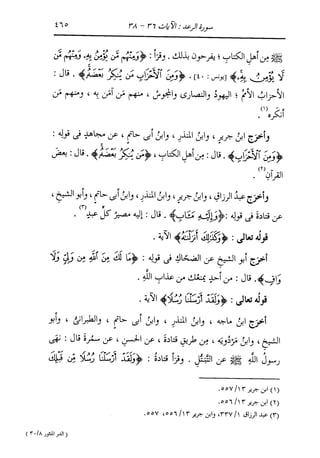 سورة الرعد : الآيات ٣٦ - ٣٨ ٤٦٥
ﷺ من أهلِ الكتابِ ؛ يفرحون بذلك . وقرأ : ﴿وَمِنْهُم مَّن يُؤْمِنُ بِهِ، وَمِنْهُم مَّن
لَّا يُؤْمِنُ بِهِ﴾ [يونس : ٤٠] . ﴿وَمِنَ ٱلْأَحْزَابِ مَن يُنكِرُ بَعْضَهُۥ﴾ . قال :
الأحزابُ الأممُ ؛ اليهودُ والنصارى والمجوسُ ، منهم مَن آمَن به ، ومنهم مَن
أنكَره(١) .
وأخرَج ابنُ جريرٍ ، وابنُ المنذرِ ، وابنُ أبى حاتمٍ ، عن مجاهدٍ فى قولِه :
﴿وَمِنَ ٱلْأَحْزَابِ﴾ . قال : مِن أهلِ الكتابِ ، ﴿مَن يُنكِرُ بَعْضَهُۥ﴾ . قال : بعضَ
القرآنِ(٢) .
وأخرَج عبدُ الرزاقِ ، وابنُ جريرٍ ، وابنُ المنذرِ ، وابنُ أبى حاتمٍ ، وأبو الشيخِ ،
عن قتادةَ فى قولِه : ﴿وَإِلَيْهِ مَـَٔابِ﴾ . قال : إليه مصيرُ كلِّ عبدٍ(٣) .
قولُه تعالى : ﴿وَكَذَٰلِكَ أَنزَلْنَٰهُ﴾ الآية .
أخرَج أبو الشيخِ عن الضحاكِ فى قولِه : ﴿مَا لَكَ مِنَ ٱللَّهِ مِن وَلِيٍّ وَلَا
وَاقٍ﴾ . قال : من أحدٍ يمنعُك مِن عذابِ اللَّهِ .
قولُه تعالى : ﴿وَلَقَدْ أَرْسَلْنَا رُسُلًا﴾ الآية .
أخرَج ابنُ ماجه ، وابنُ المنذرِ ، وابنُ أبى حاتمٍ ، والطبرانىُّ ، وأبو
الشيخِ ، وابنُ مَرْدُويَه ، مِن طريقِ قتادةَ ، عن الحسنِ ، عن سمُرةَ قال : نهَى
رسولُ اللَّهِ ﷺ عن التَّبَتُّلِ . وقرَأ قتادةُ : ﴿وَلَقَدْ أَرْسَلْنَا رُسُلًا مِّن قَبْلِكَ
(١) ابن جرير ١٣/ ٥٥٧.
(٢) ابن جرير ١٣/ ٥٥٦.
(٣) عبد الرزاق ١/ ٣٣٧، وابن جرير ١٣/ ٥٥٦، ٥٥٧.
( الدر المنثور ٣٠/٨ )